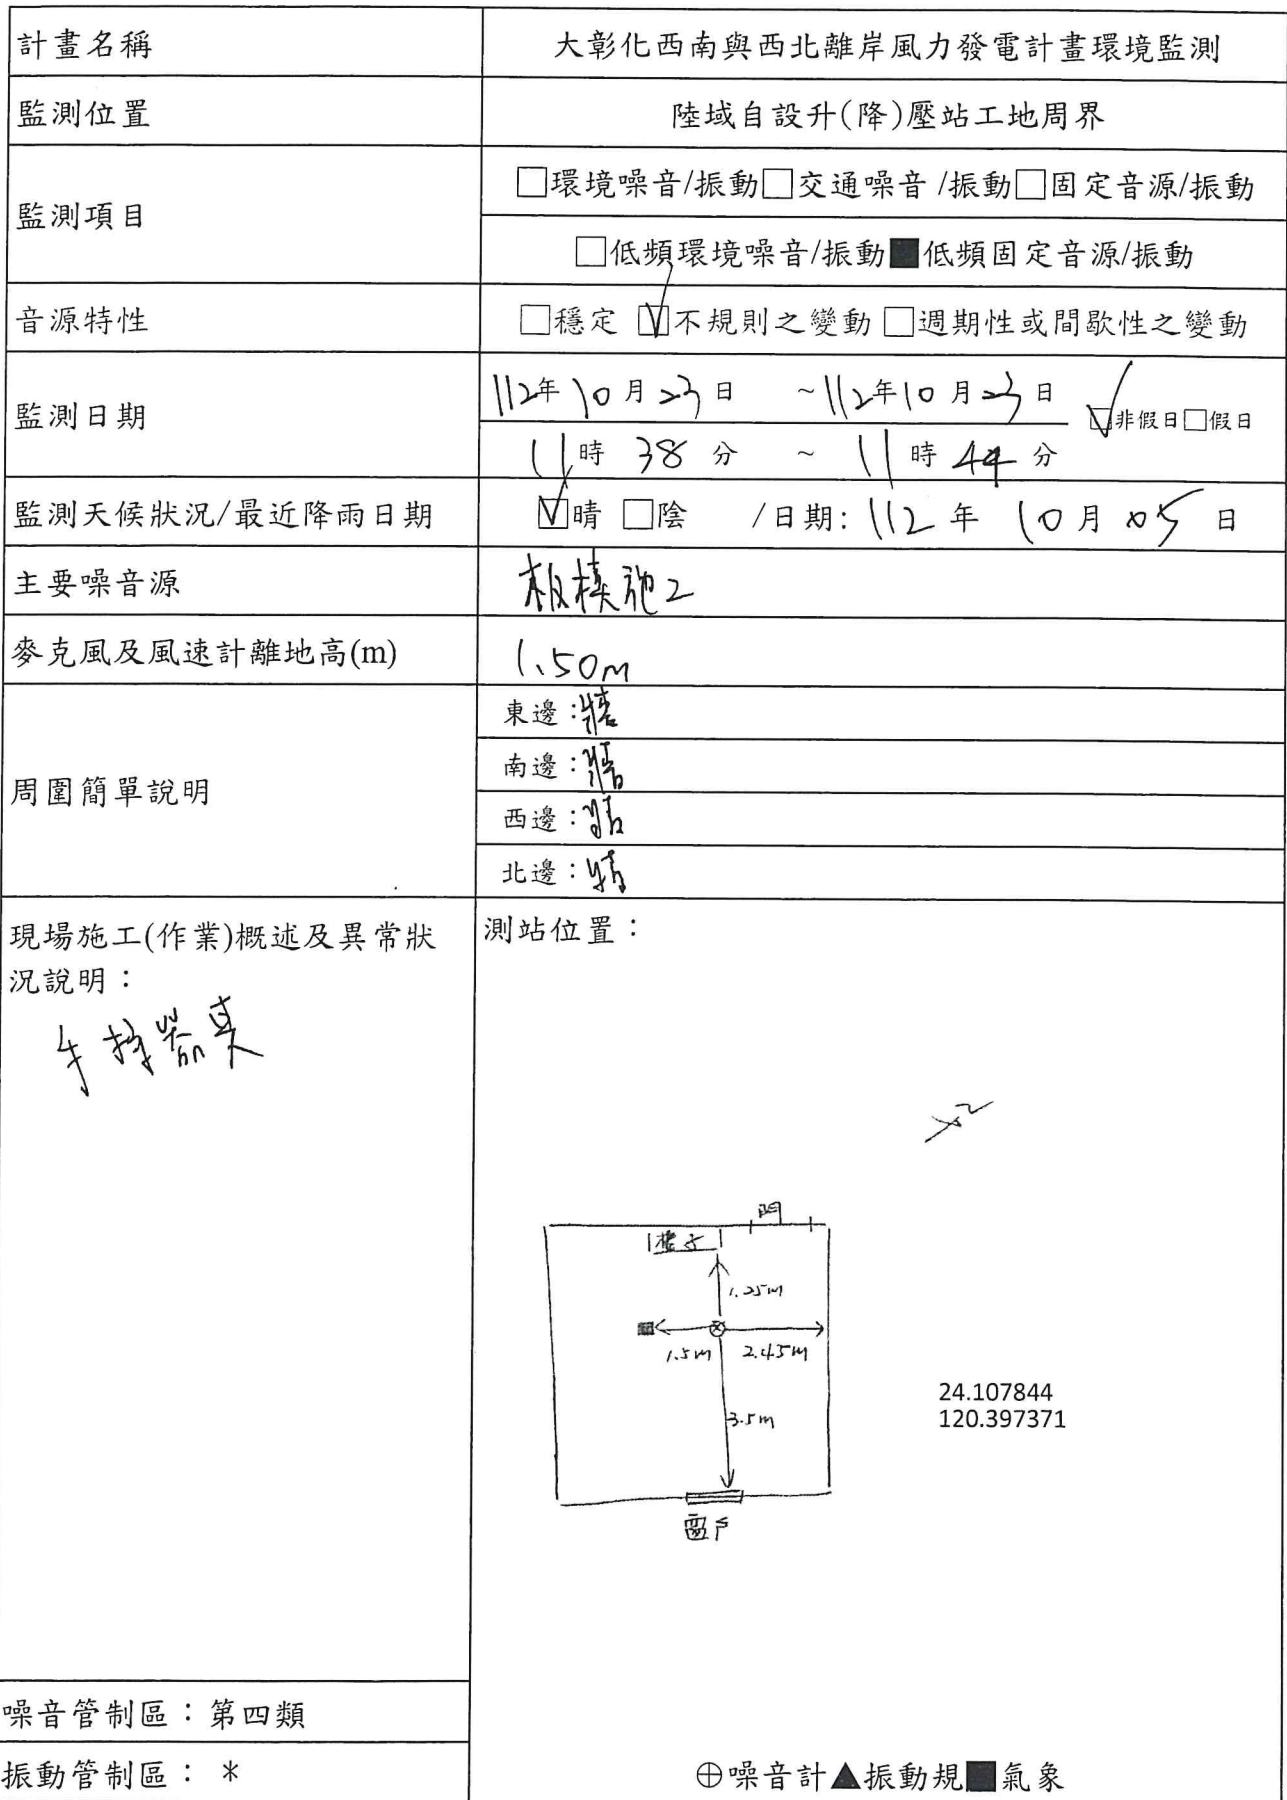 計畫名稱
大彰化西南與西北離岸風力發電計畫環境監測
監測位置
陸域自設升(降)壓站工地周界
監測項目
□環境噪音/振動□交通噪音 /振動□固定音源/振動
□低頻環境噪音/振動■低頻固定音源/振動
音源特性
□穩定 ☑不規則之變動 □週期性或間歇性之變動
監測日期
112年10月23日 ~112年10月23日 ☑非假日□假日
11時 38 分 ~ 11 時 44 分
監測天候狀況/最近降雨日期
☑晴 □陰 /日期: 112 年 10 月 05 日
主要噪音源
板模施工
麥克風及風速計離地高(m)
1.50m
周圍簡單說明
東邊:牆
南邊:牆
西邊:牆
北邊:牆
現場施工(作業)概述及異常狀
況說明:
手持器具
測站位置:
門
櫃子
1.25m
1.5m 2.45m
3.5m
窗戶
24.107844
120.397371
噪音管制區:第四類
振動管制區: *
⊕噪音計▲振動規■氣象